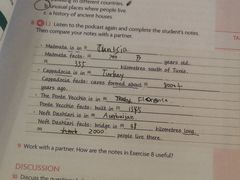 in different countries
b unusual places where people live
c a history of ancient houses
8 Listen to the podcast again and complete the student's notes.
Then compare your notes with a partner.
TA
• Matmata is in Tunisia
• Matmata facts: 700 years old.
335 kilometres south of Tunis.
• Cappadocia is in Turkey
• Cappadocia facts: caves formed about
years ago.
• The Ponte Vecchio is in Florence
• Ponte Vecchio facts: built in 1345
• Neft Dashlari is in Azerbaijan
• Neft Dashlari facts: bridge is 48 kilometres long,
2000 people live there.
9 Work with a partner. How are the notes in Exercise 8 useful?
DISCUSSION
10 Discuss the